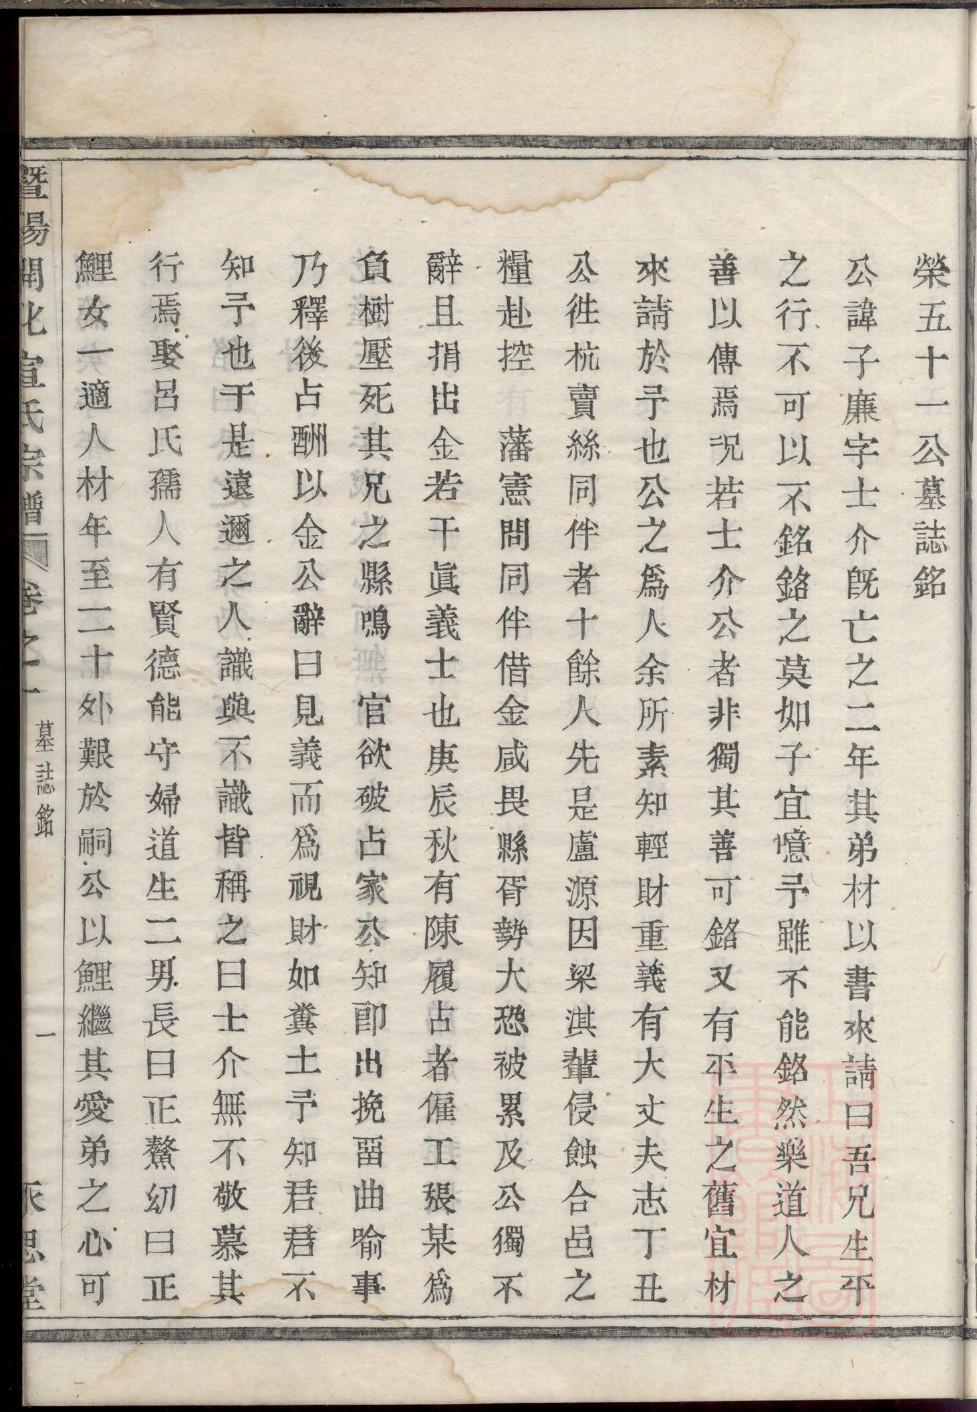 榮五十一公墓誌銘
公諱子廉字士介旣亡之二年其弟材以書來請曰吾兄生平
之行不可以不銘銘之莫如子宜噫予雖不能銘然樂道人之
善以傳焉况若士介公者非獨其善可銘又有平生之舊宜材
來請於予也公之爲人余所素知輕財重義有大丈夫志丁丑
公徃杭賣絲同伴者十餘人先是盧源因梁淇輩侵蝕合邑之
糧赴控 藩憲問同伴借金咸畏縣胥勢大恐被累及公獨不
辭且捐出金若干眞義士也庚辰秋有陳履占者僱工張某爲
負樹壓死其兄之縣鳴 官欲破占家公知卽出挽畱曲喻事
乃釋後占酬以金公辭曰見義而爲視財如糞土予知君君不
知予也于是遠邇之人識與不識皆稱之曰士介無不敬慕其
行焉娶呂氏孺人有賢德能守婦道生二男長曰正鰲幼曰正
鯉女一適人材年至二十外艱於嗣公以鯉繼其愛弟之心可
暨陽開化宣氏宗譜 卷之一 墓誌銘 一 永思堂